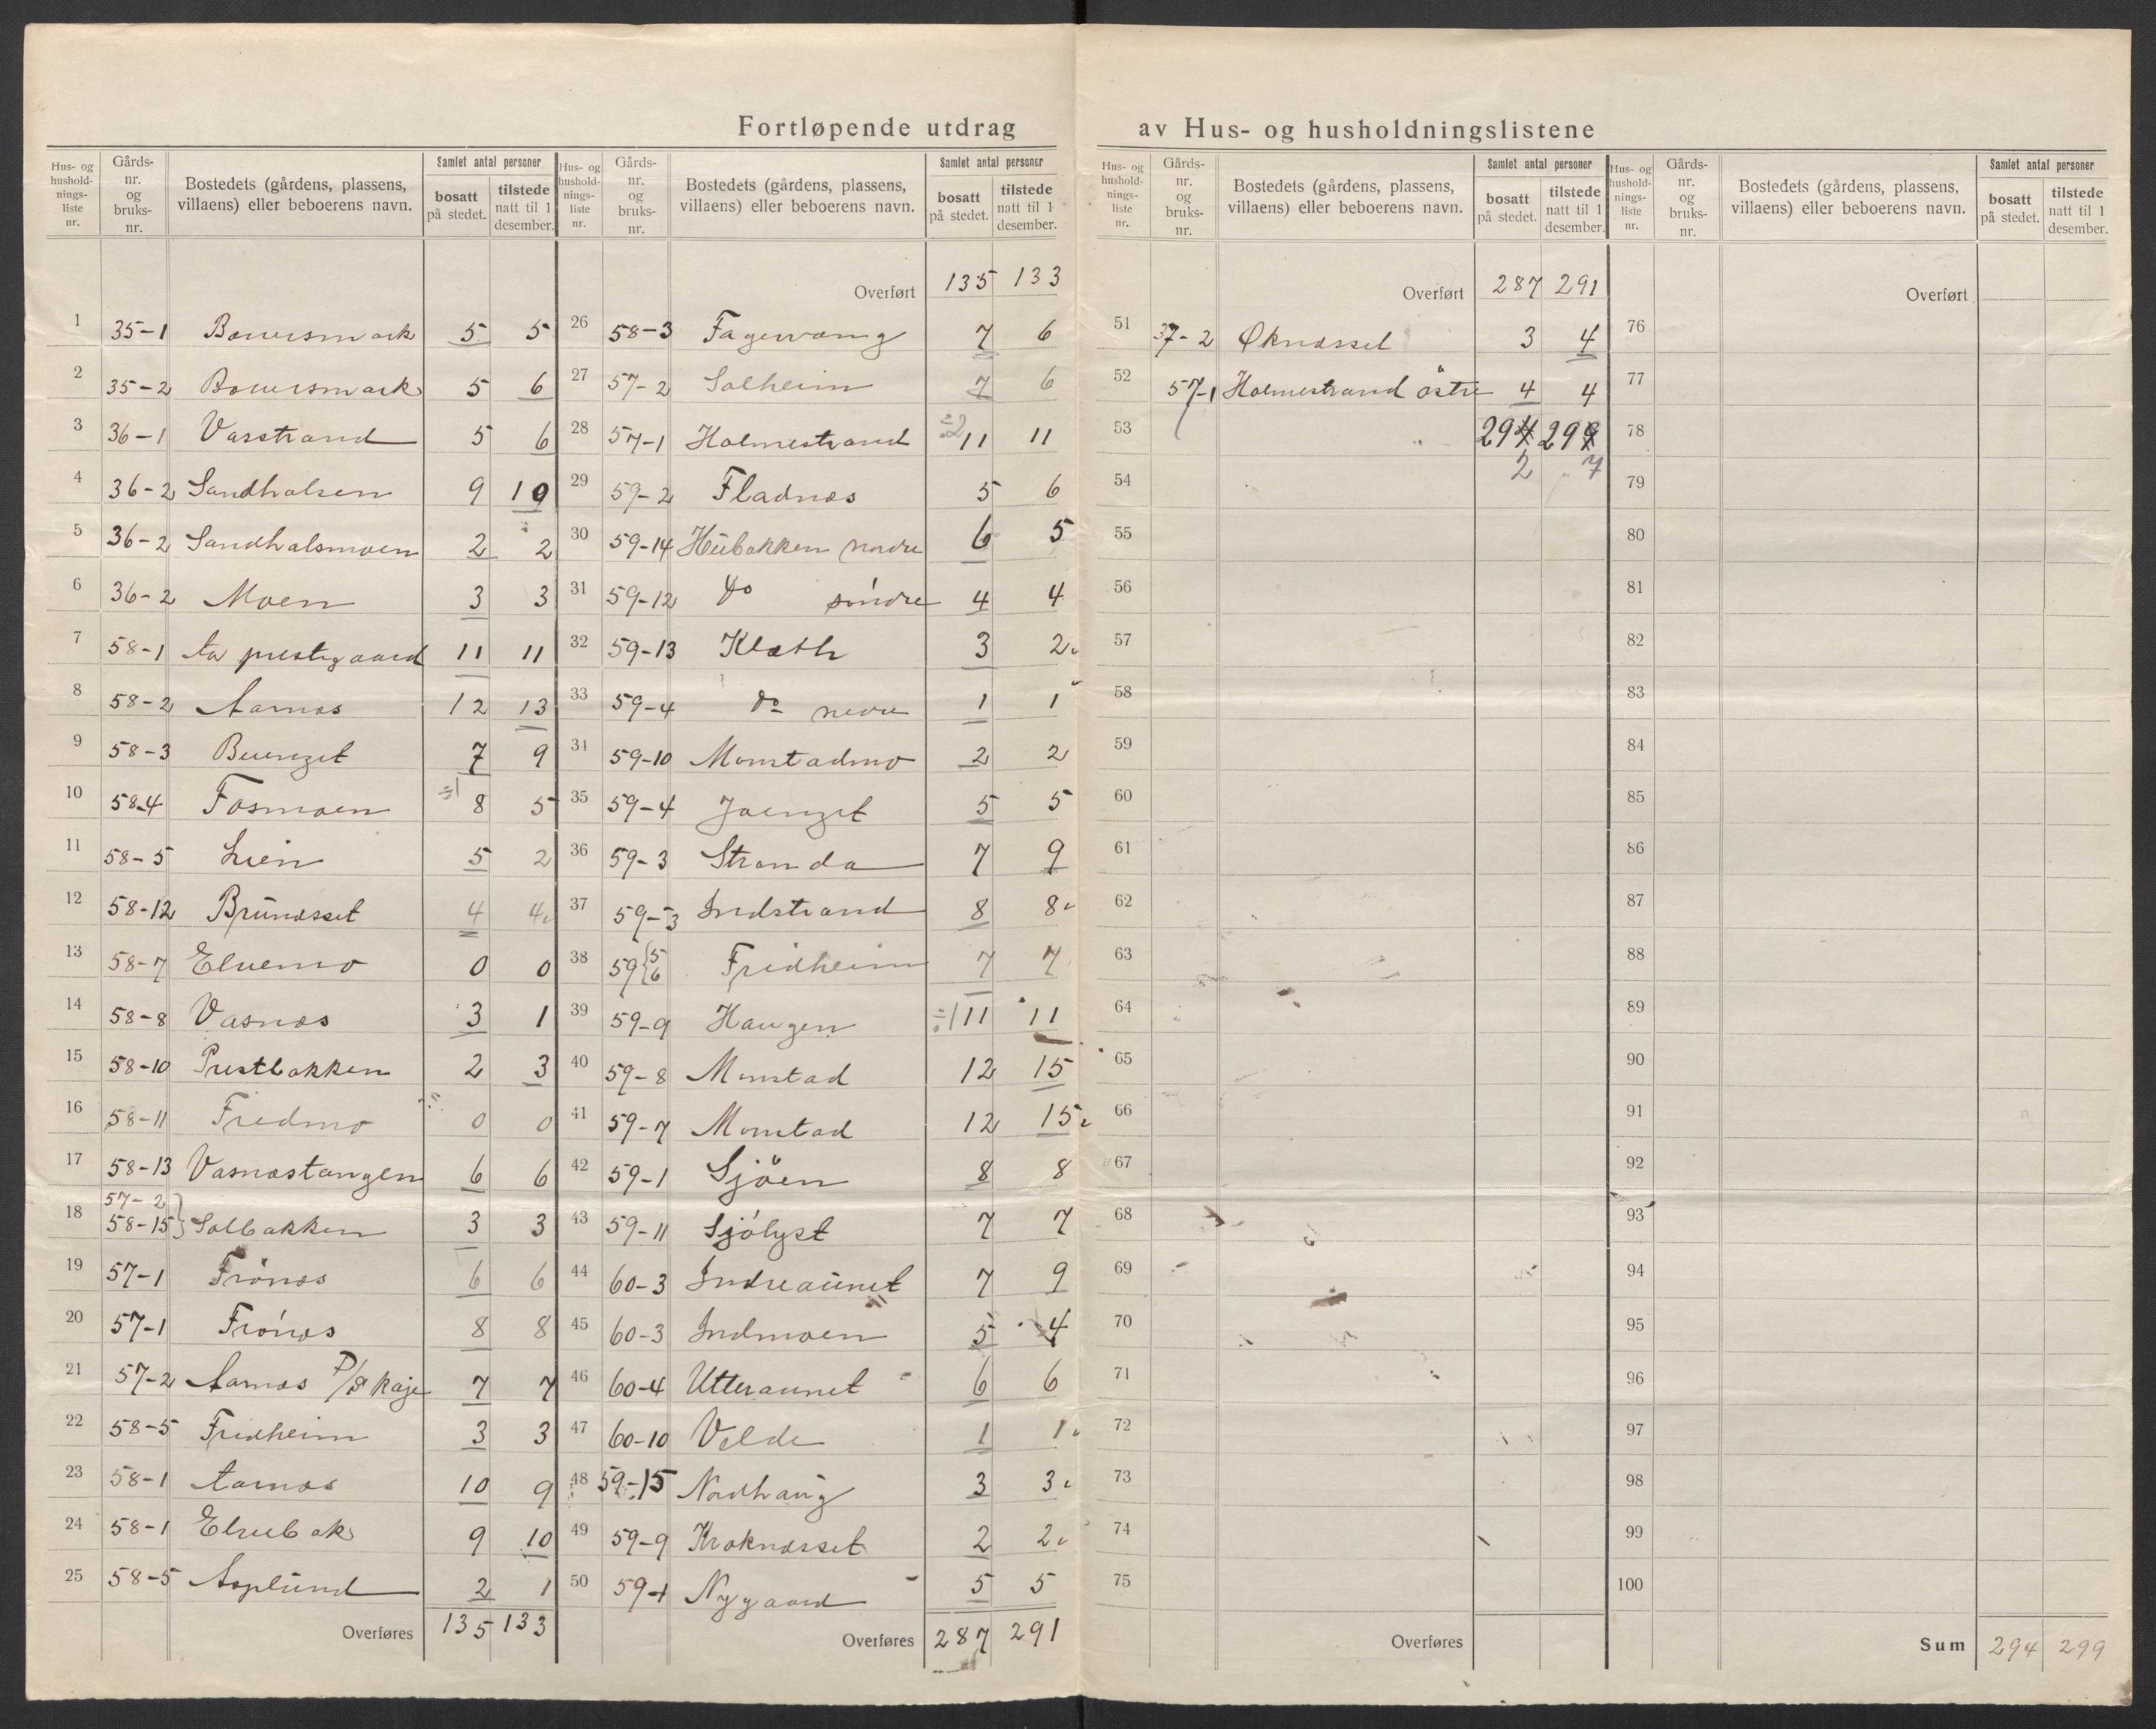 Fortløpende utdrag av Hus- og husholdningslistene
Hus- og husholdningsliste nr. | Gårds-nr. og bruks-nr. | Bostedets (gårdens, plassens, villaens) eller beboerens navn. | Samlet antal personer: bosatt på stedet. | tilstede natt til 1 desember.
1 35-1 Bouvrsmark 5 5
2 35-2 Bouvrsmark 5 6
3 36-1 Vasstrand 5 6
4 36-2 Sandhalsen 9 10
5 36-2 Sandhalsmoen 2 2
6 36-2 Moen 3 3
7 58-1 Aa prestegaard 11 11
8 58-2 Aarnæs 12 13
9 58-3 Buenget 7 9
10 58-4 Fosmoen ÷1 8 5
11 58-5 Lien 5 2
12 58-12 Brunæsset 4 4
13 58-7 Elvemo 0 0
14 58-8 Vasnæs 3 1
15 58-10 Prestbakken 2 3
16 58-11 Fredmo 0 0
17 58-13 Vasnæstangen 6 6
18 57-2 58-15 } Solbakken 3 3
19 57-1 Frönæs 6 6
20 57-1 Frönæs 8 8
21 57-2 Aarnæs P/S kaje 7 7
22 58-5 Fridheim 3 3
23 58-1 Aarnæs 10 9
24 58-1 Elvebak 9 10
25 58-5 Asplund 2 1
Overføres 135 133
Hus- og husholdningsliste nr. | Gårds-nr. og bruks-nr. | Bostedets (gårdens, plassens, villaens) eller beboerens navn. | Samlet antal personer: bosatt på stedet. | tilstede natt til 1 desember.
Overført 135 133
26 58-3 Fagervang 7 6
27 57-2 Solheim 7 6
28 57-1 Holmestrand ÷2 11 11
29 59-2 Fladnæs 5 6
30 59-14 Heibakken nordre 6 5
31 59-12 do söndre 4 4
32 59-13 Kleth 3 2
33 59-4 do nedre 1 1
34 59-10 Momstadmo 2 2
35 59-4 Joenget 5 5
36 59-3 Stranda 7 9
37 59-3 Indstrand 8 8
38 59{5 6 Fridheim 7 7
39 59-9 Haugen ÷1 11 11
40 59-8 Momstad 12 15
41 59-7 Momstad 12 15
42 59-1 Sjöen 8 8
43 59-11 Sjölyst 7 7
44 60-3 Indreaunet 7 9
45 60-3 Indmoen 5 4
46 60-4 Utteraunet 6 6
47 60-10 Velde 1 1
48 59-15 Nordhaug 3 3
49 59-9 Kroknæsset 2 2
50 59-1 Nygaard 5 5
Overføres 287 291
Hus- og husholdningsliste nr. | Gårds-nr. og bruks-nr. | Bostedets (gårdens, plassens, villaens) eller beboerens navn. | Samlet antal personer: bosatt på stedet. | tilstede natt til 1 desember.
Overført 287 291
51 37-2 Øknæsset 3 4
52 57-1 Holmestrand östre 4 4
53 294 299
54 2 7
55
56
57
58
59
60
61
62
63
64
65
66
67
68
69
70
71
72
73
74
75
Overføres
Hus- og husholdningsliste nr. | Gårds-nr. og bruks-nr. | Bostedets (gårdens, plassens, villaens) eller beboerens navn. | Samlet antal personer: bosatt på stedet. | tilstede natt til 1 desember.
Overført
76
77
78
79
80
81
82
83
84
85
86
87
88
89
90
91
92
93
94
95
96
97
98
99
100
Sum 294 299